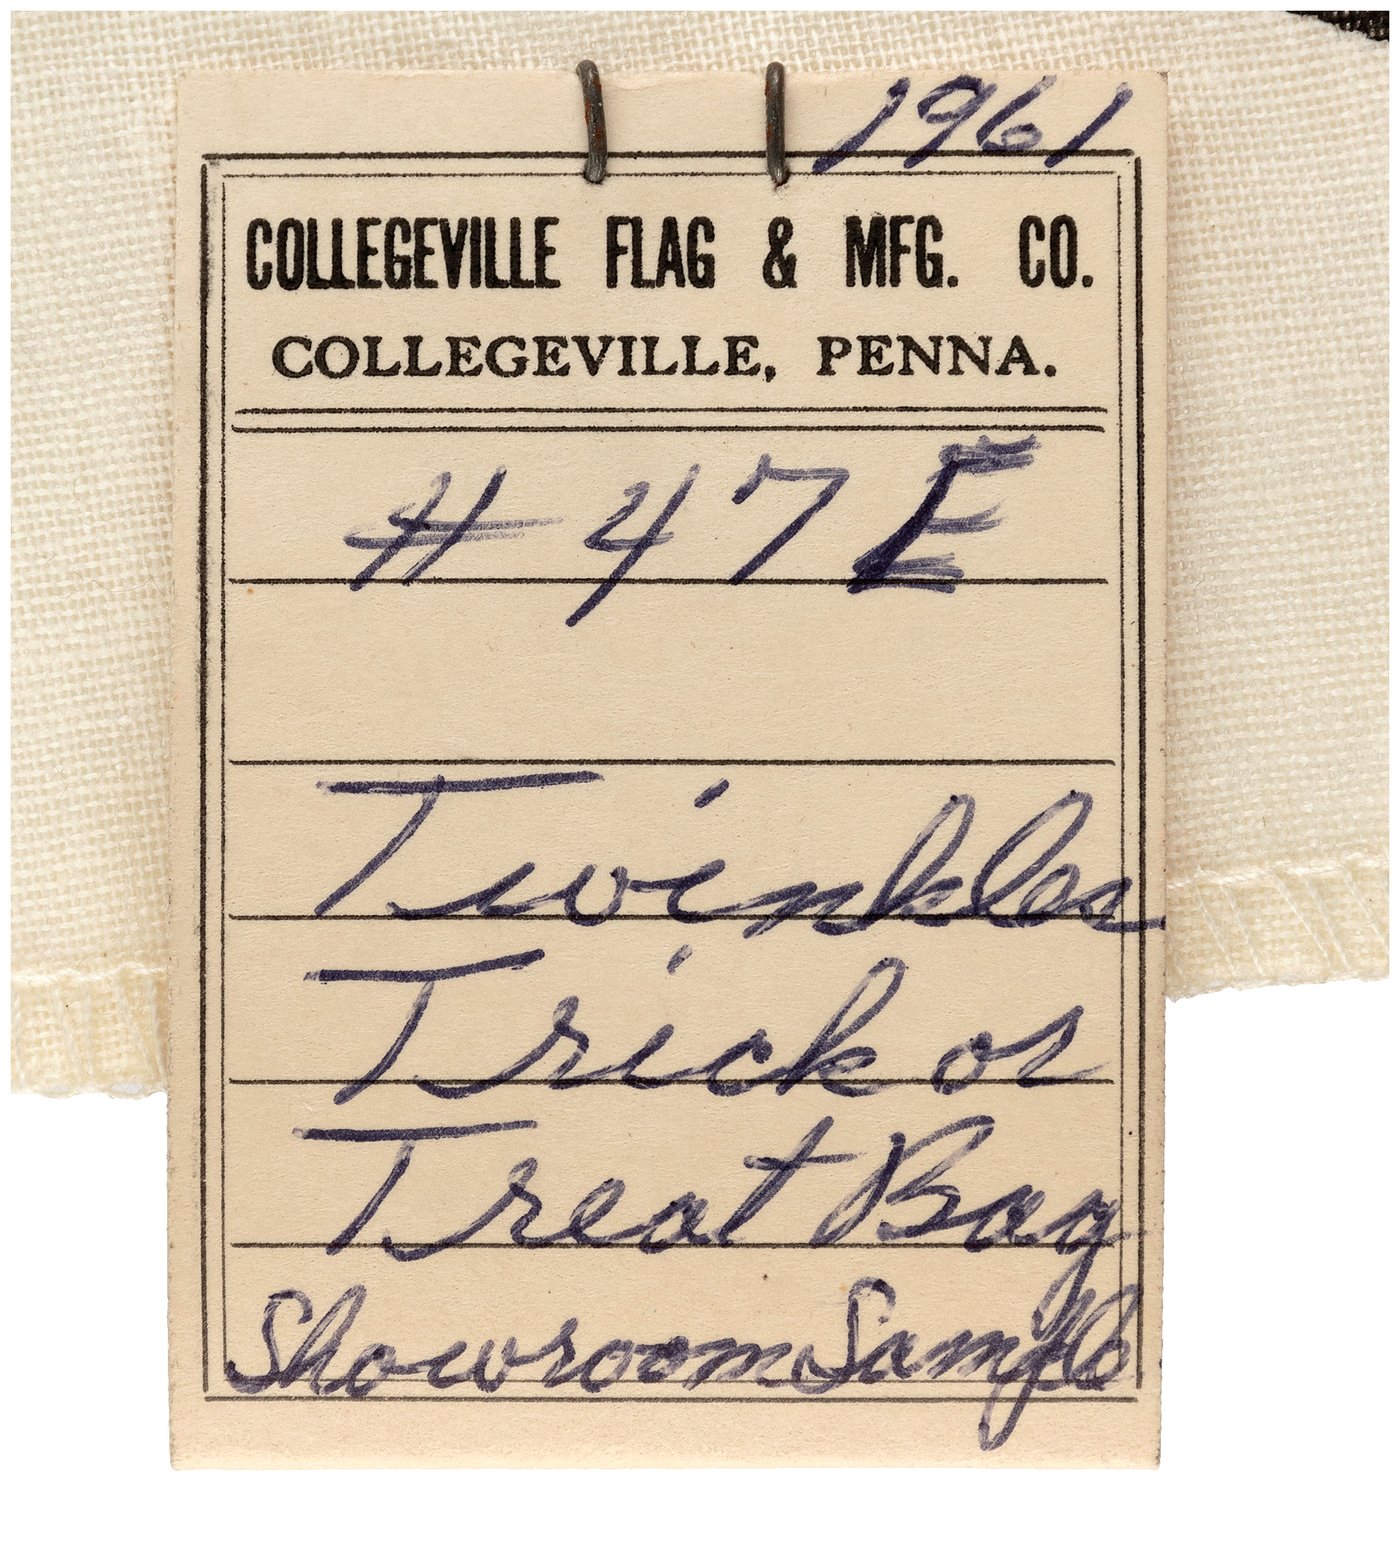 1961
COLLEGEVILLE FLAG & MFG. CO.
COLLEGEVILLE, PENNA.
# 47 E
Twinkles
Trick or
Treat Bag
Showroom Sample